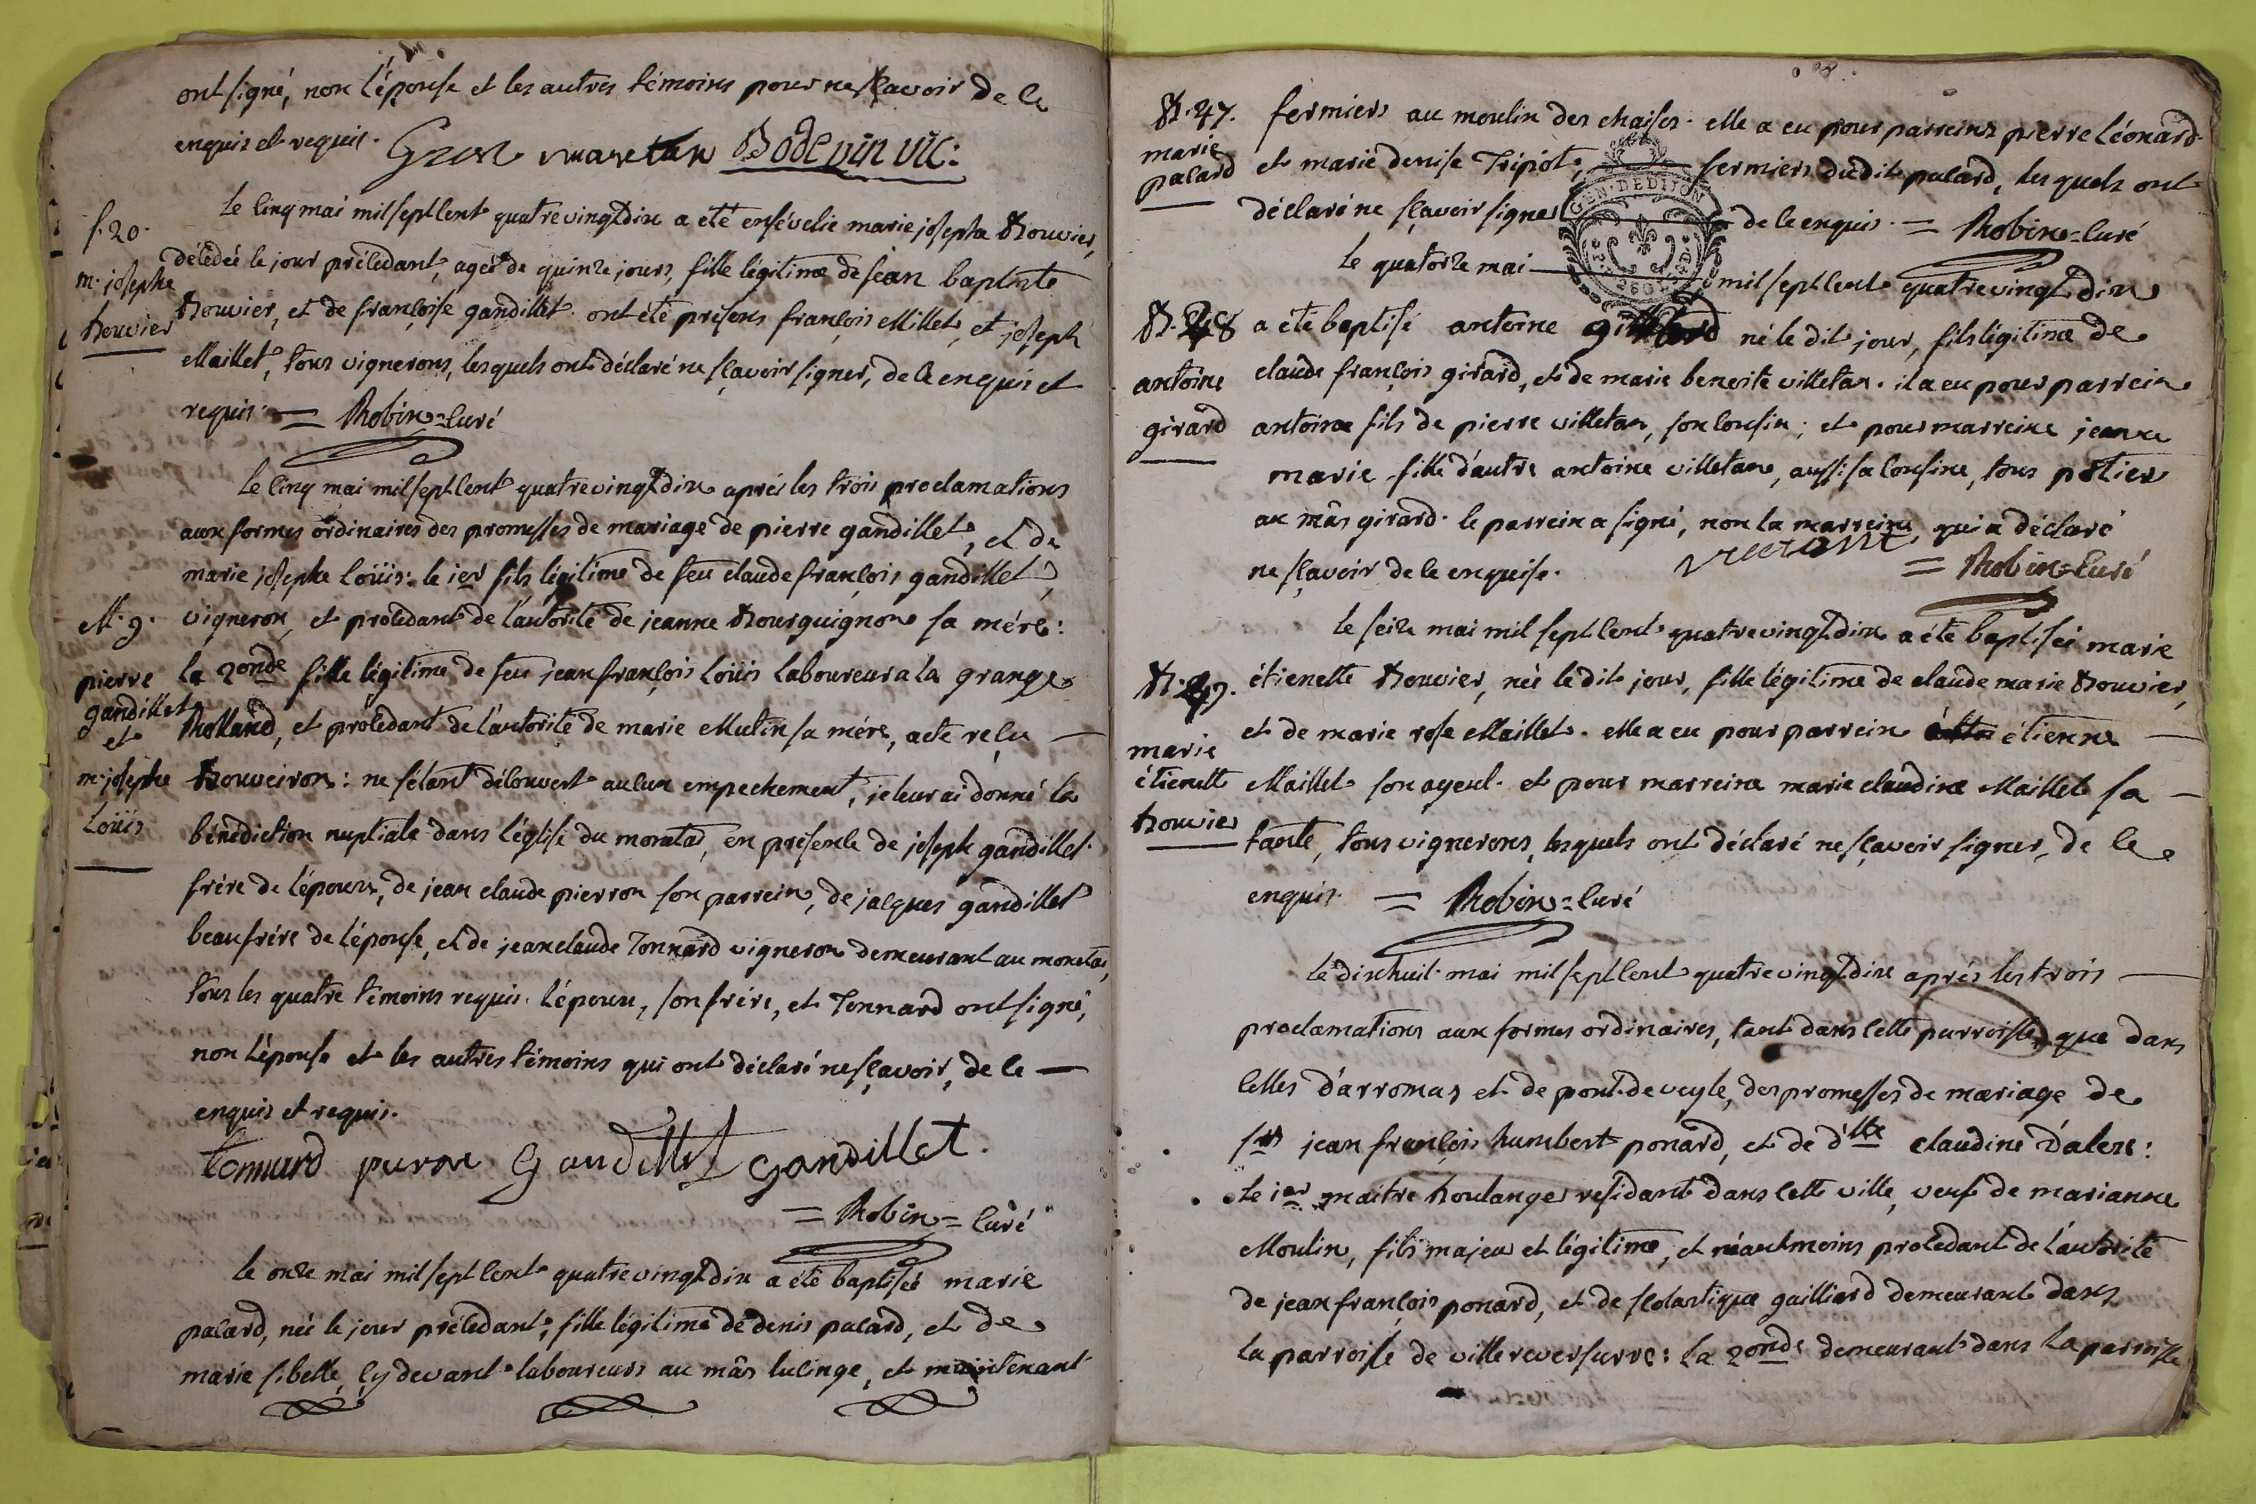 ont signé, non l'épouse et les autres témoins pour ne sçavoir de ce
enquis et requis. Bodepin vic:
Le cinq mai mil sept cent quatrevingt dix a été ensévelie marie josephe Bouvier,
f. 20.
m. josephe
Bouvier
décédée le jour précédant, ageé de quinze jours, fille légitime de jean baptiste
Bouvier, et de françoise gandillet. ont été présens françois Millet, et joseph
Maillet, tous vignerons, lesquels ont déclaré ne sçavoir signer, de ce enquis et
requis. = Robin=curé
Le cinq mai mil sept cent quatrevingt dix aprés les trois proclamations
aux formes ordinaires des promesses de mariage de pierre gandillet, et de
marie josephe Loüis: le 1er fils légitime de feu claude françois gandillet,
M. 9.
pierre
gandillet
et
m. josephe
Loüis
vigneron, et procédant de l'autorité de jeanne Bourguignon sa mére:
la 2onde fille légitime de feu jean françois Loüis laboureur a la grange
Rolland, et procédant de l'autorité de marie Mutin sa mére, acte reçu —
Bouveiron: ne s'étant découvert aucun empechement, je leur ai donné la
bénédiction nuptiale dans l'église du monetay, en présence de joseph gandillet
frére de l'époux, de jean claude pierron son parrein, de jacques gandillet
beaufrére de l'épouse, et de jean claude Tonnard vigneron demeurant au monetay,
tous les quatre témoins requis. l'époux, son frére, et Tonnard ont signé,
non l'épouse et les autres témoins qui ont déclaré ne sçavoir, de ce —
enquis et requis.
Tonnard Gandillet gandillet.
= Robin = curé
Le onze mai mil sept cent quatrevingt dix a été baptisée marie
pacard, née le jour précédant, fille légitime de denis pacard, et de
marie sibelle, cy devant laboureurs au mâs lucinge, et maintenant
B. 47.
marie
pacard
fermiers au moulin des chaises. elle a eu pour parreins pierre Léonard
et marie denise Tripot, fermiers dudit pacard, lesquels ont
déclaré ne sçavoir signer de ce enquis. = Robin=curé
GEN. DE DIJON
Le quatorze mai — mil sept cent quatrevingt dix
B. 48
antoine
girard
a été baptisé antoine girard né le dit jour, fils légitime de
claude françois girard, et de marie benoite villetan. il a eu pour parrein
antoine fils de pierre villetan, son cousin; et pour marreine jeanne
marie fille d'autre antoine villetan, aussi sa cousine, tous potier
au mâs girard. le parrein a signé, non la marreine, qui a déclaré
ne sçavoir de ce enquise. = Robin=curé
Le seize mai mil sept cent quatrevingt dix a été baptiseé marie
B. 49.
marie
étienette
Bouvier
étienette Bouvier, née le dit jour, fille légitime de claude marie Bouvier,
et de marie rose Maillet. elle a eu pour parrein étienne —
Maillet son ayeul. et pour marreine marie claudine Maillet sa —
tante, tous vignerons, lesquels ont déclaré ne sçavoir signer, de ce
enquis. = Robin=curé
Le dixhuit mai mil sept cent quatrevingt dix aprés les trois —
proclamations aux formes ordinaires, tant dans cette parroisse, que dans
celles d'arromas et de pont-de-veyle, des promesses de mariage de
sr jean françois humbert ponard, et de dlle claudine Dalere:
le 1er maitre boulanger résidant dans cette ville, veuf de marianne
Moulin, fils majeur et légitime, et néantmoins procédant de l'autorité
de jean françois ponard, et de scolastique gailliard demeurant dans
la parroisse de villereversurre: la 2onde demeurant dans la parroisse